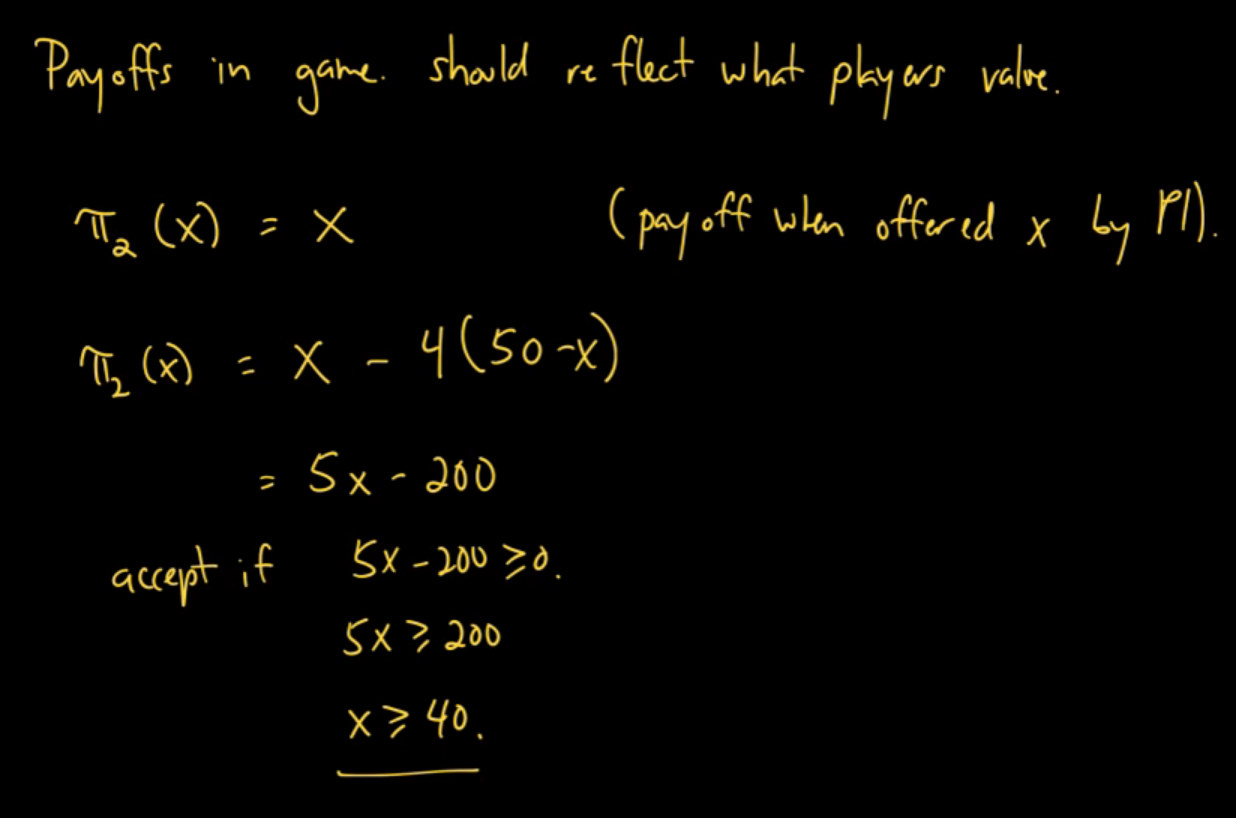 Payoffs in game. should reflect what players value.
π₂(x) = x (payoff when offered x by P1).
π₂(x) = x - 4(50-x)
= 5x - 200
accept if 5x - 200 ≥ 0.
5x ≥ 200
x ≥ 40.